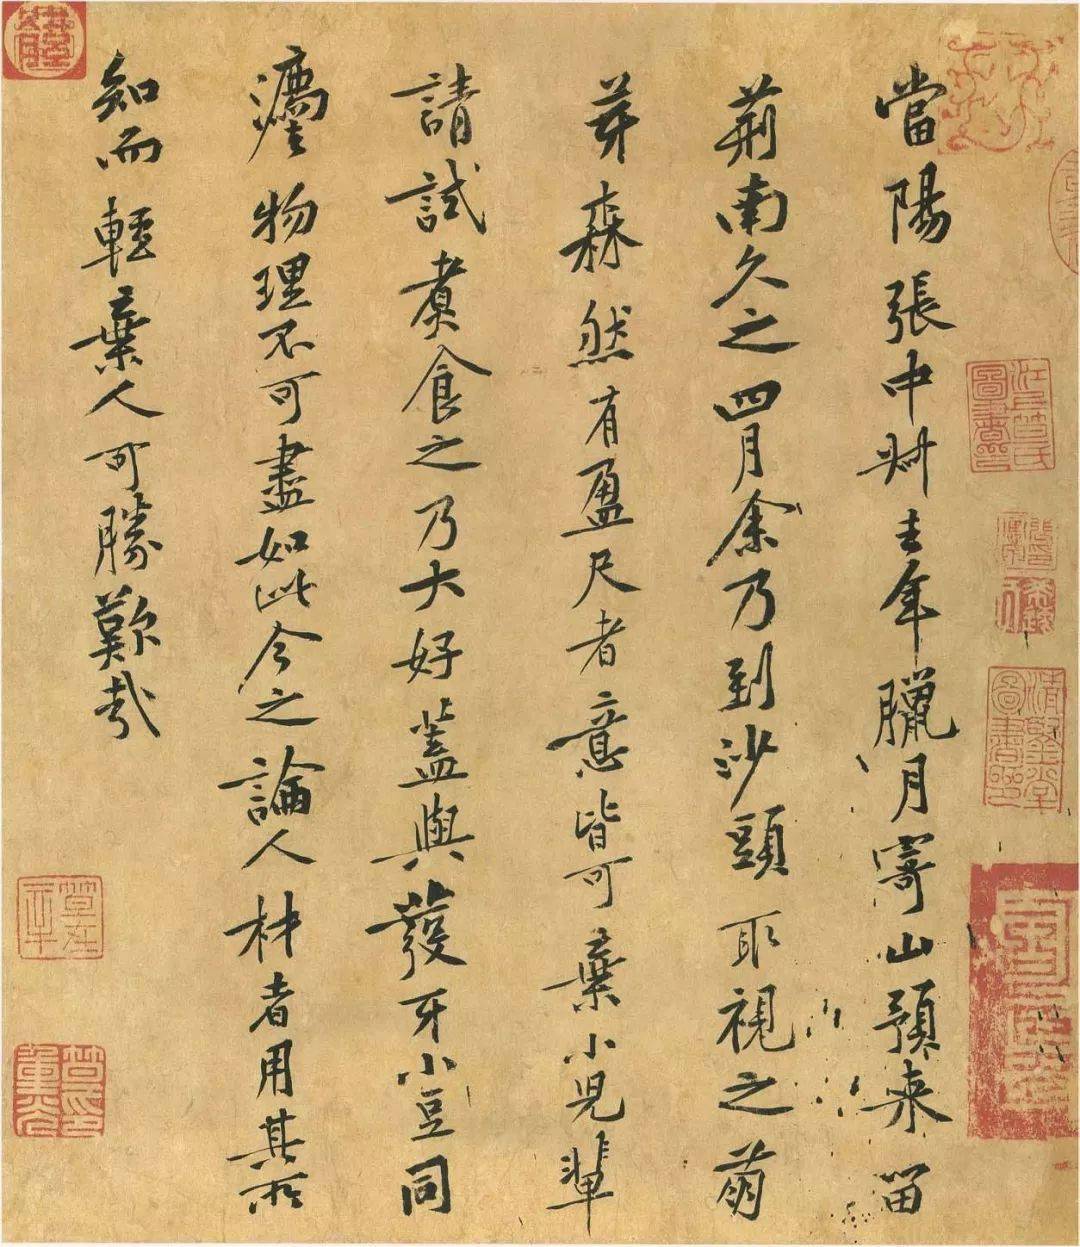 當陽張中叔去年臘月寄山預來留
荊南久之四月余乃到沙頭取視之萌
芽森然有盈尺者意皆可棄小兒輩
請試煮食之乃大好蓋與發牙小豆同
瀘物理不可盡如此今之論人材者用其所
知而輕棄人可勝歎哉